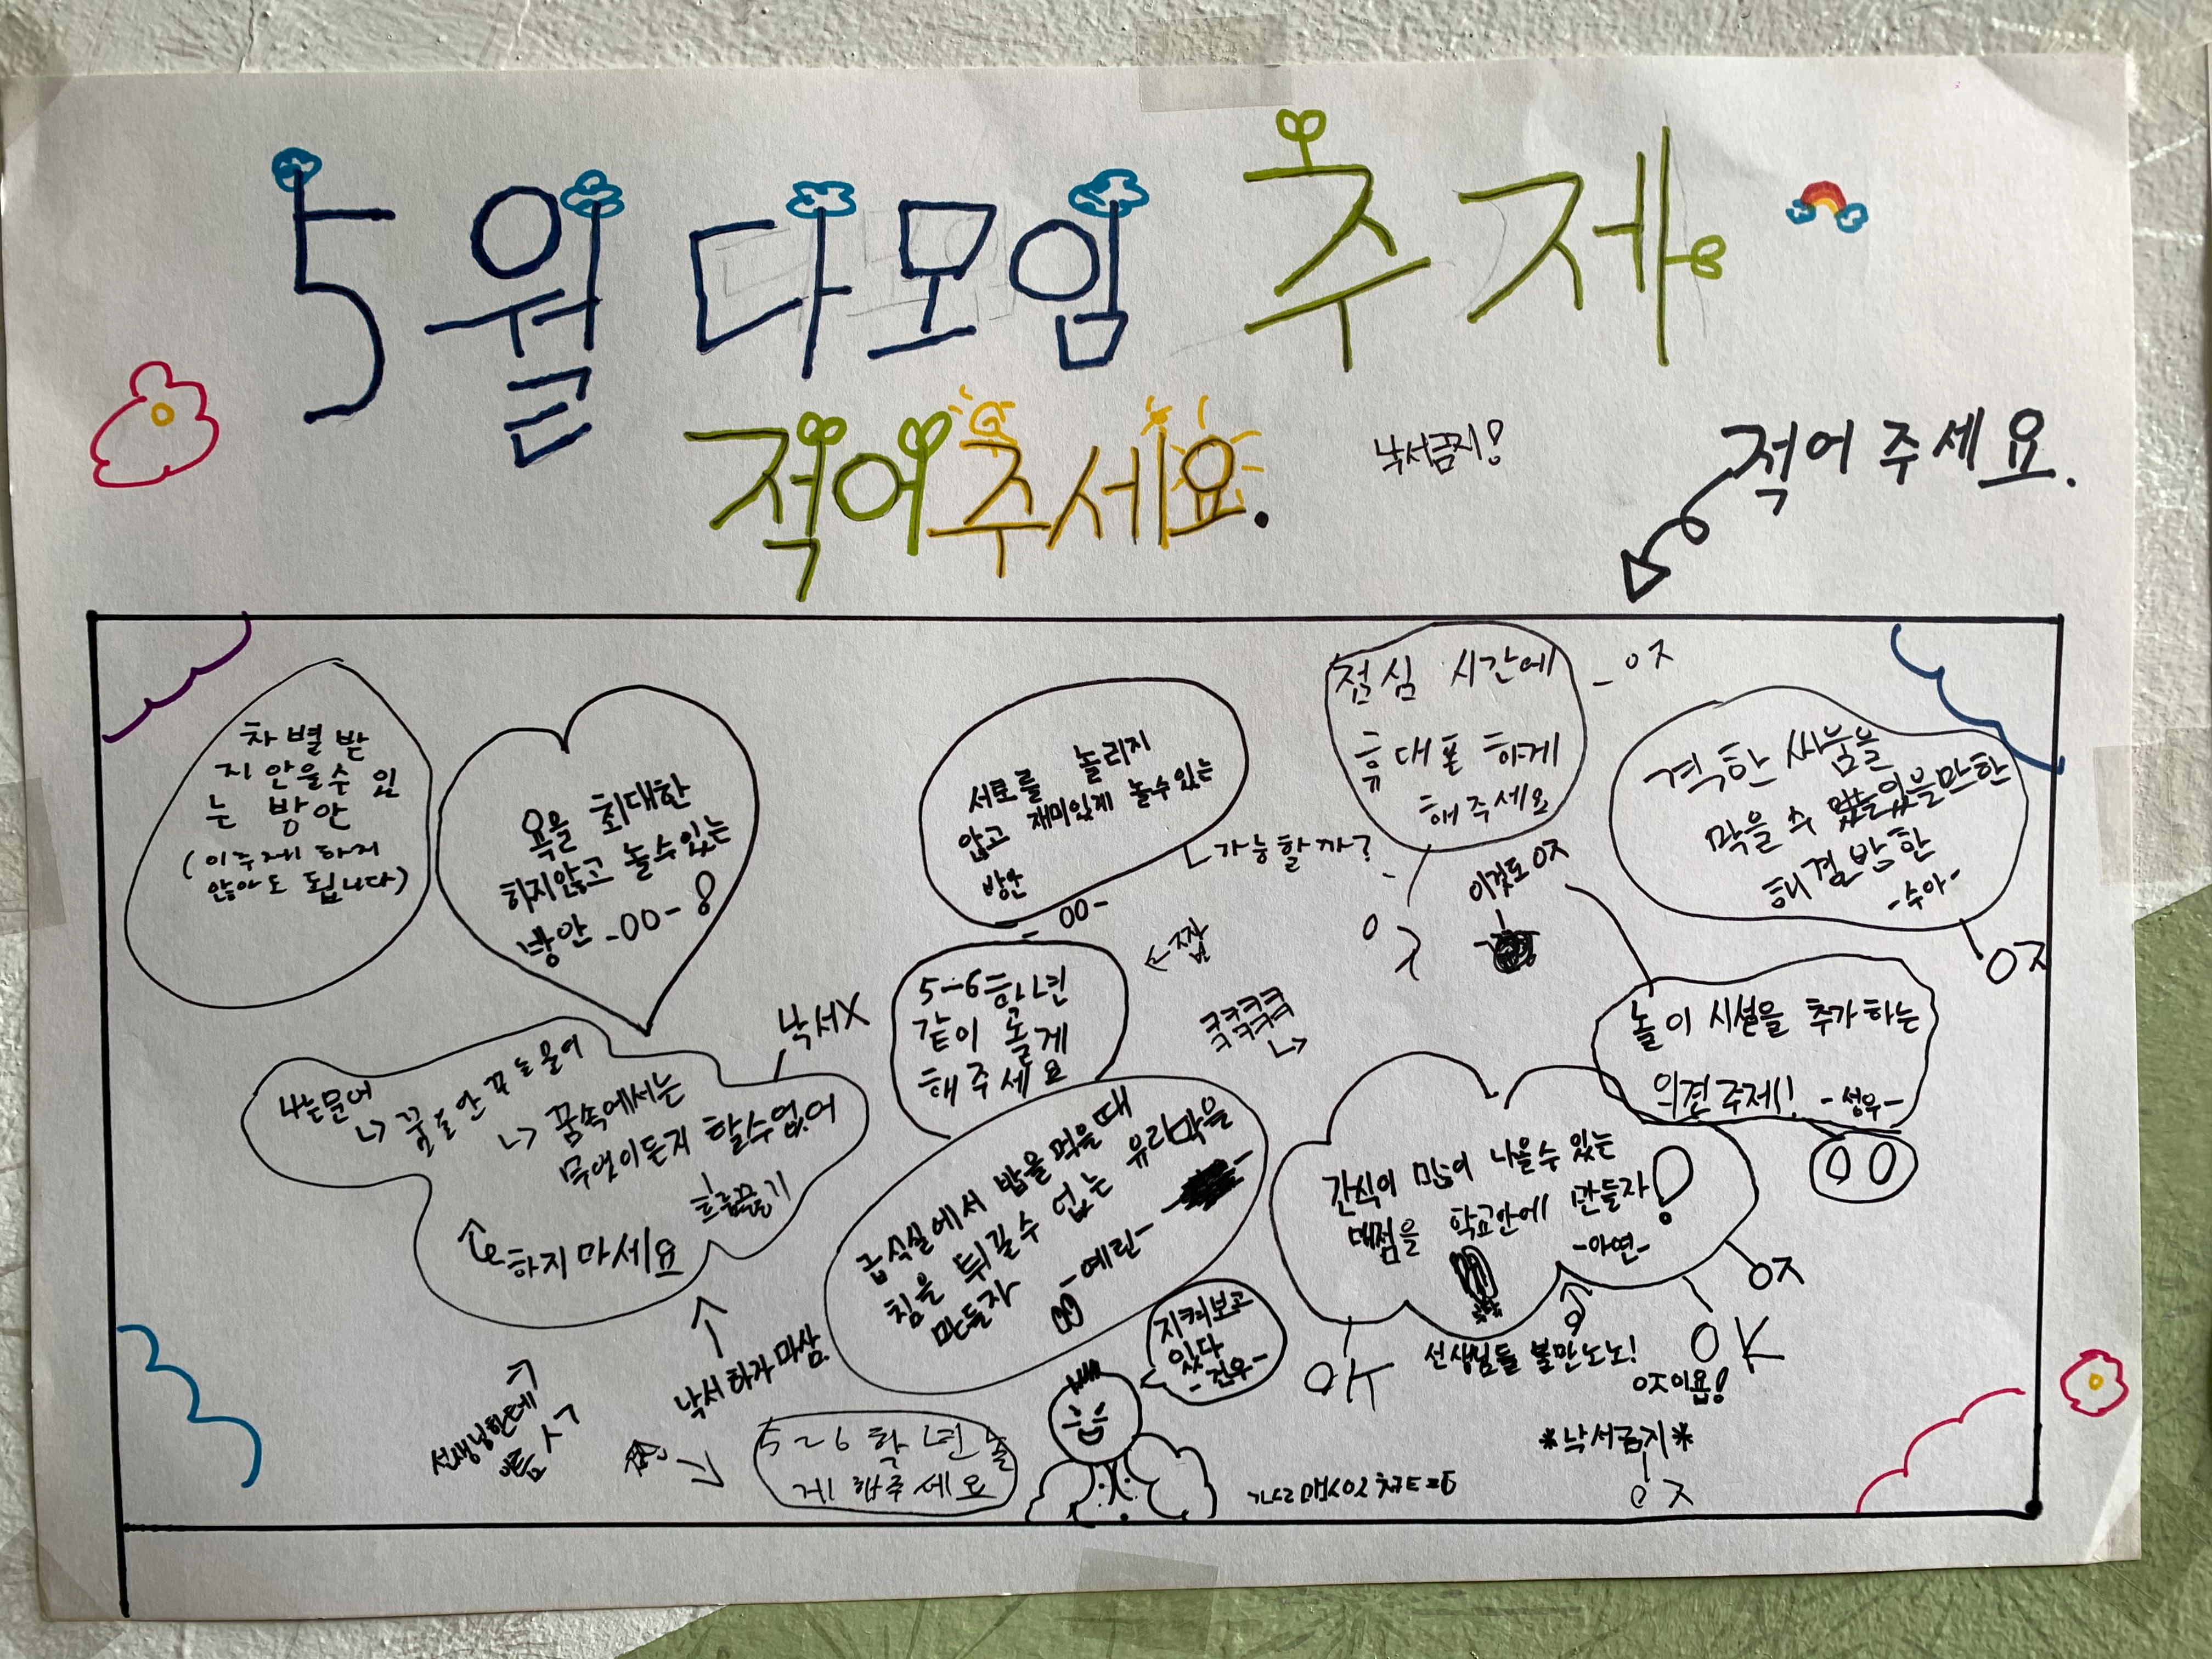 5월 다모임 주제
적어주세요.
낙서금지!
적어 주세요.
차별받
지 안을수 있
는 방안
(이주제 하지
않아도 됩니다)
욕을 최대한
하지않고 놀수있는
방안 -00-
서로를 놀리지
않고 재미있게 놀수있는
방안
-00-
가능할까?
점심 시간에
휴대폰 하게
해주세요
ㅇㅈ
이것도 ㅇㅈ
ㅇㅈ
격한 싸움을
막을 수 있을만한
해결방안
-수아-
ㅇㅈ
←짭
5-6학년
같이 놀게
해주세요
ㅋㅋㅋㅋ
ㅋㅋㅋㅋ
놀이 시설을 추가하는
의견 주제!! -성우-
00
낙서X
나는문어
꿈을 안 꾸는 문어
꿈속에서는
무엇이든지 할수없어
흐름끊기
하지마세요
급식실에서 밥을 먹을때
침을 튀길수 없는 유리막을
만들자 -예린-
간식이 많이 나올수 있는
매점을 학교안에 만들자!
-아연-
ㅇㅈ
OK
OK
선생님들 불만노노!
ㅇㅈ이욥!
*낙서금지*
ㅇㅈ
지켜보고
있다
-건우-
낙서하자마삼
선생님한테
526학년놀
게 해주세요